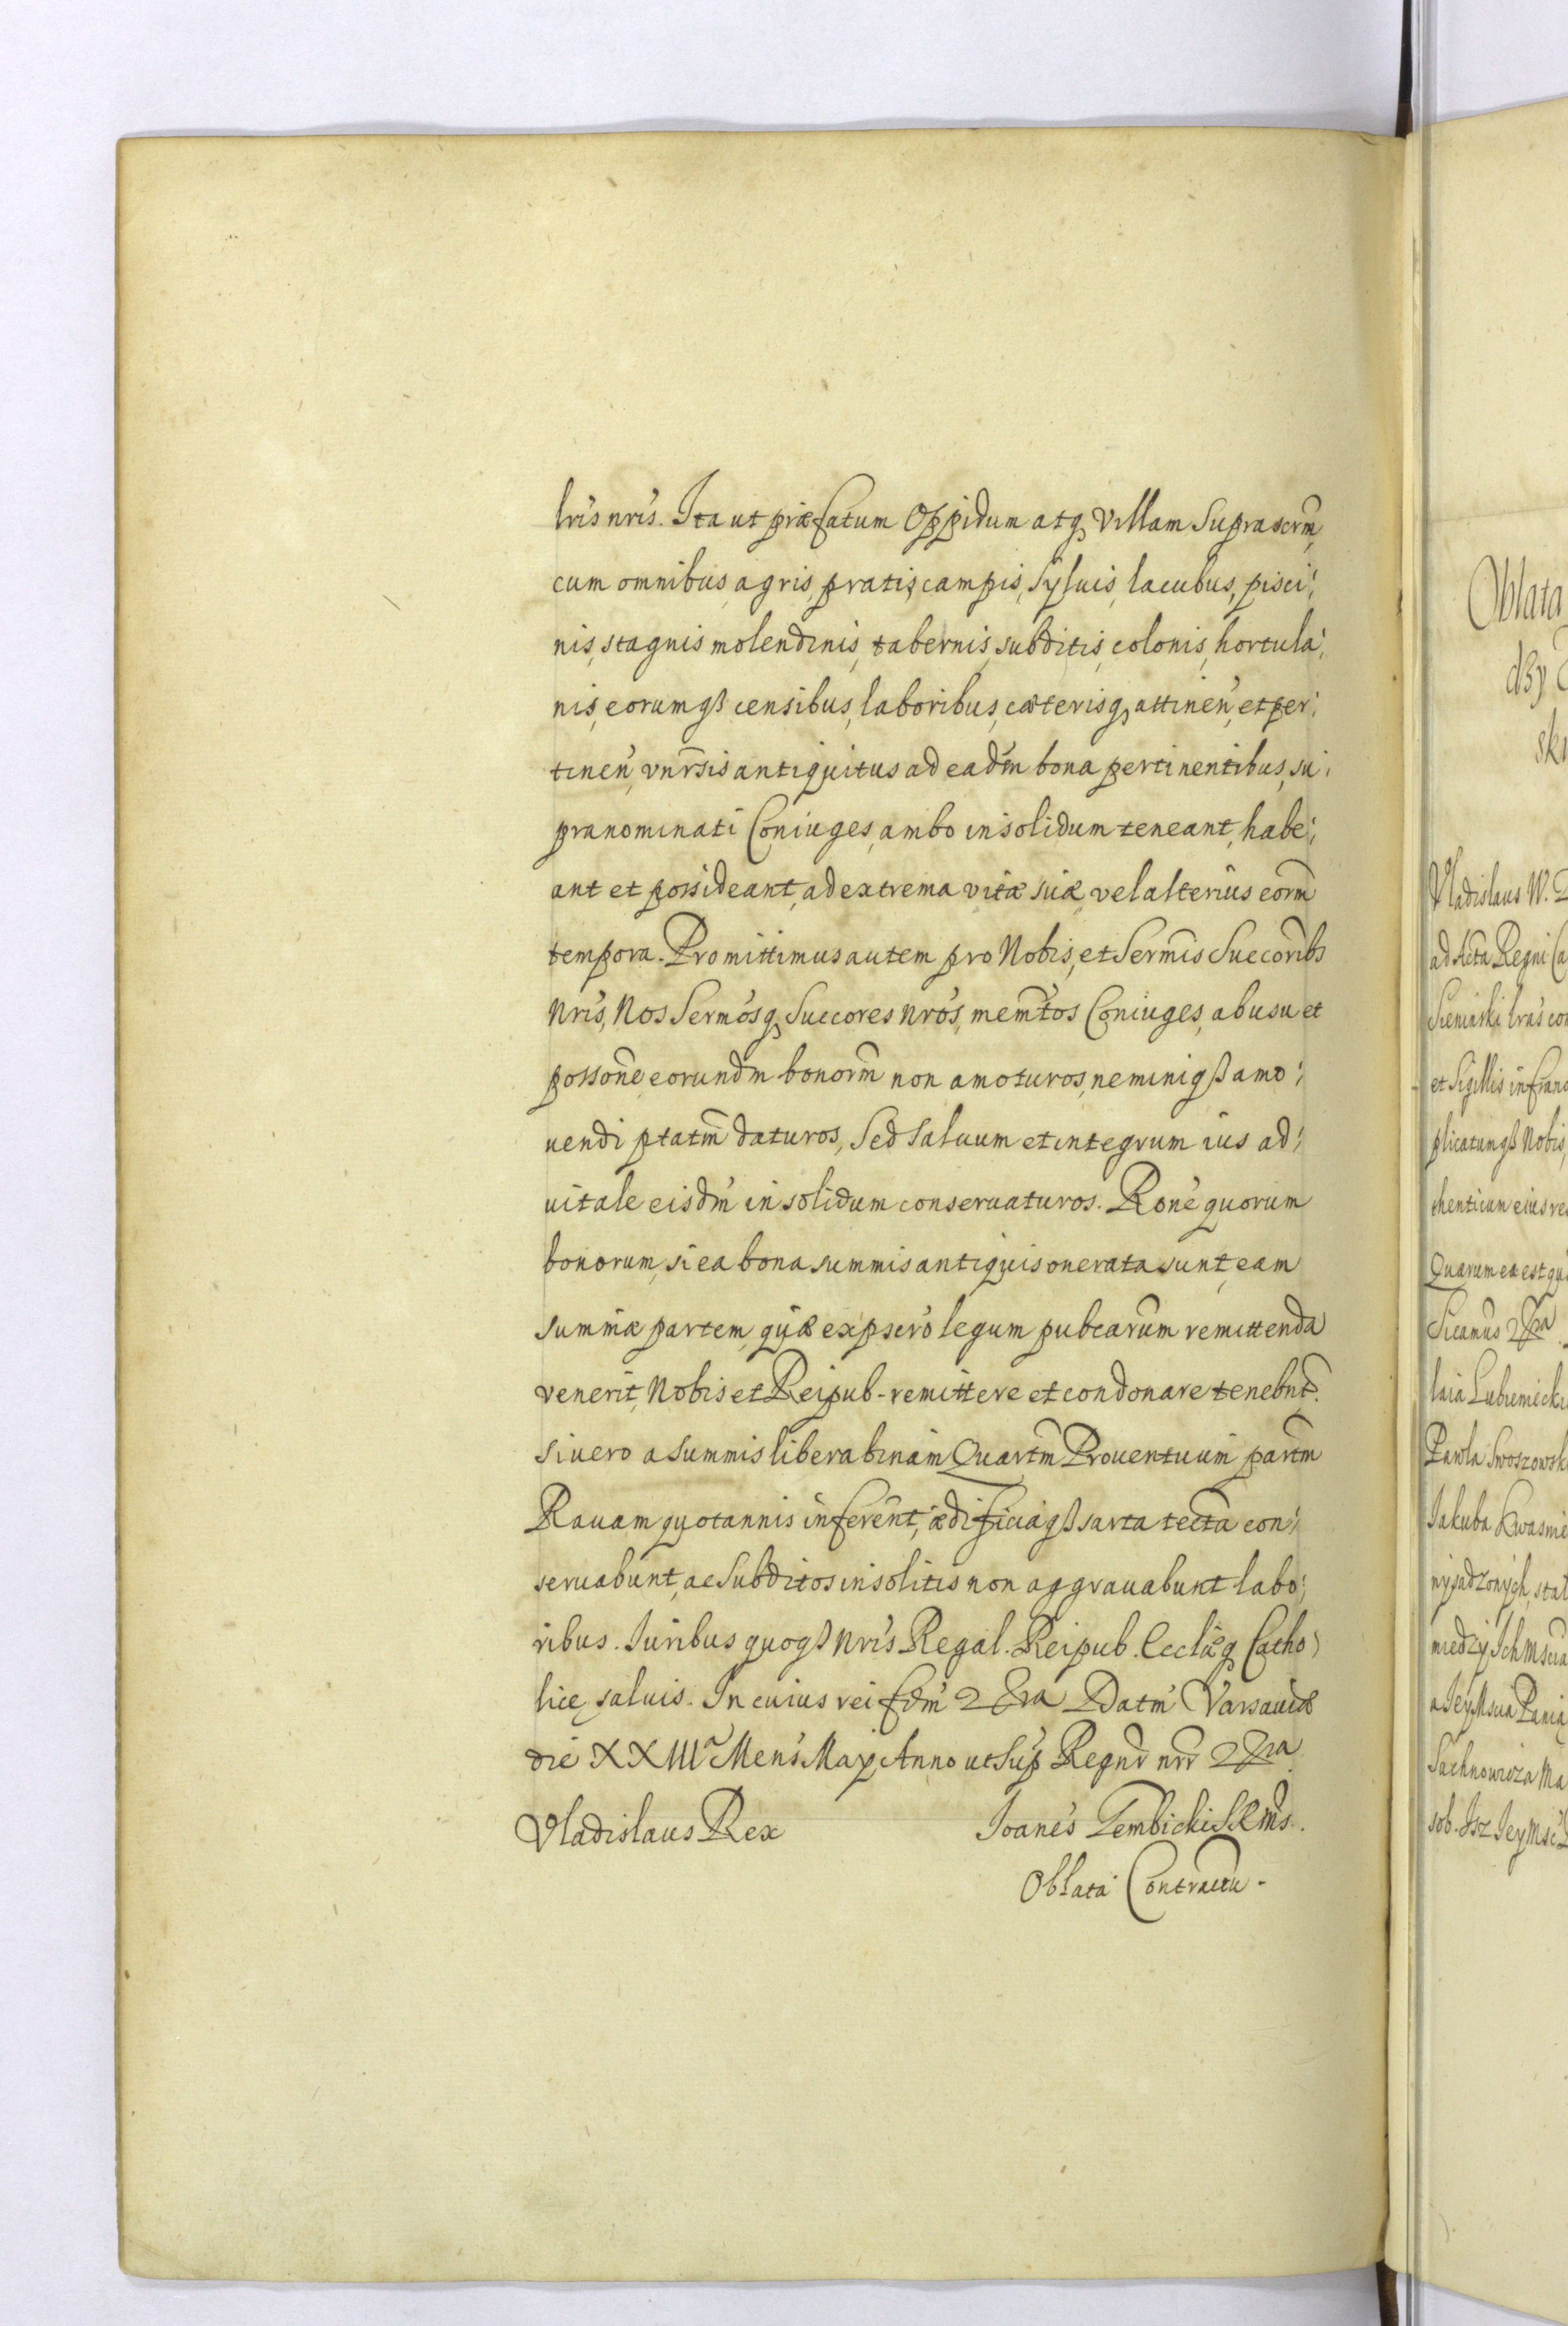 lr̃is nr̃is. Ita ut præfatum Oppidum atq, Villam Suprascrm̃,
cum omnibus, agris, pratis, campis, Syluis, lacubus, pisci;
nis, stagnis molendinis, tabernis, subditis, colonis, hortula;
nis, eorumqß censibus, laboribus, cæterisq, attinen̄, et per;
tinen̄, vnr̃sis antiquitus ad eadm̃ bona pertinentibus, su;
pranominati Coniuges, ambo insolidum teneant, habe;
ant et possideant, ad extrema vitæ suæ, vel alterius eorm̃
tempora. Promittimus autem pro Nobis, et Serm̃is Succorib̃s
Nr̃is, Nos Serm̃osq, Succores Nr̃os, mem̃tos Coniuges, ab usu et
possonẽ eorundm̃ bonorm̃ non amoturos, neminiqß amo;
uendi ptatm̃ daturos, Sed Saluum et integrum ius ad;
uitale eisdm̃ in solidum conseruaturos. Ronẽ quorum
bonorum, si ea bona summis antiquis onerata sunt, eam
summæ partem, quæ ex pscrõ legum pubcarũm remittenda
venerit, Nobis et Reipub- remittere et condonare tenebnt̃.
Si uero a Summis libera binam Quartm̃ Prouentuum partm̃
Rauam quotannis inferẽnt, ædificiaqß sarta tecta con;
seruabunt, ac Subditos insolitis non aggrauabunt labo;
ribus. Iuribus quoqß Nr̃is Regal. Reipub. Ecclæq, Catho;
lice, saluis. In cuius rei fdm̃ 2 Xra Datm̃ Varsauiæ
die XXIII Mens̃ Maÿ Anno ut Sup̃ Regnr̃ nrr̃ 2 Xra
Vladislaus Rex Ioanes̃ Gembicki SRM̃s.
Oblata Contractu.
Oblata
dzy
Vladislaus
ad Acta Regni
Sieninski lras̃
et Sigillis
plicatumqß Nobis,
thenticum eius
Quarum ea est
Sicamus̃ 2 Xra
Pawla Swoszowsk
Iakuba
nÿsadzonÿch,
miedzÿ
sob. Isz